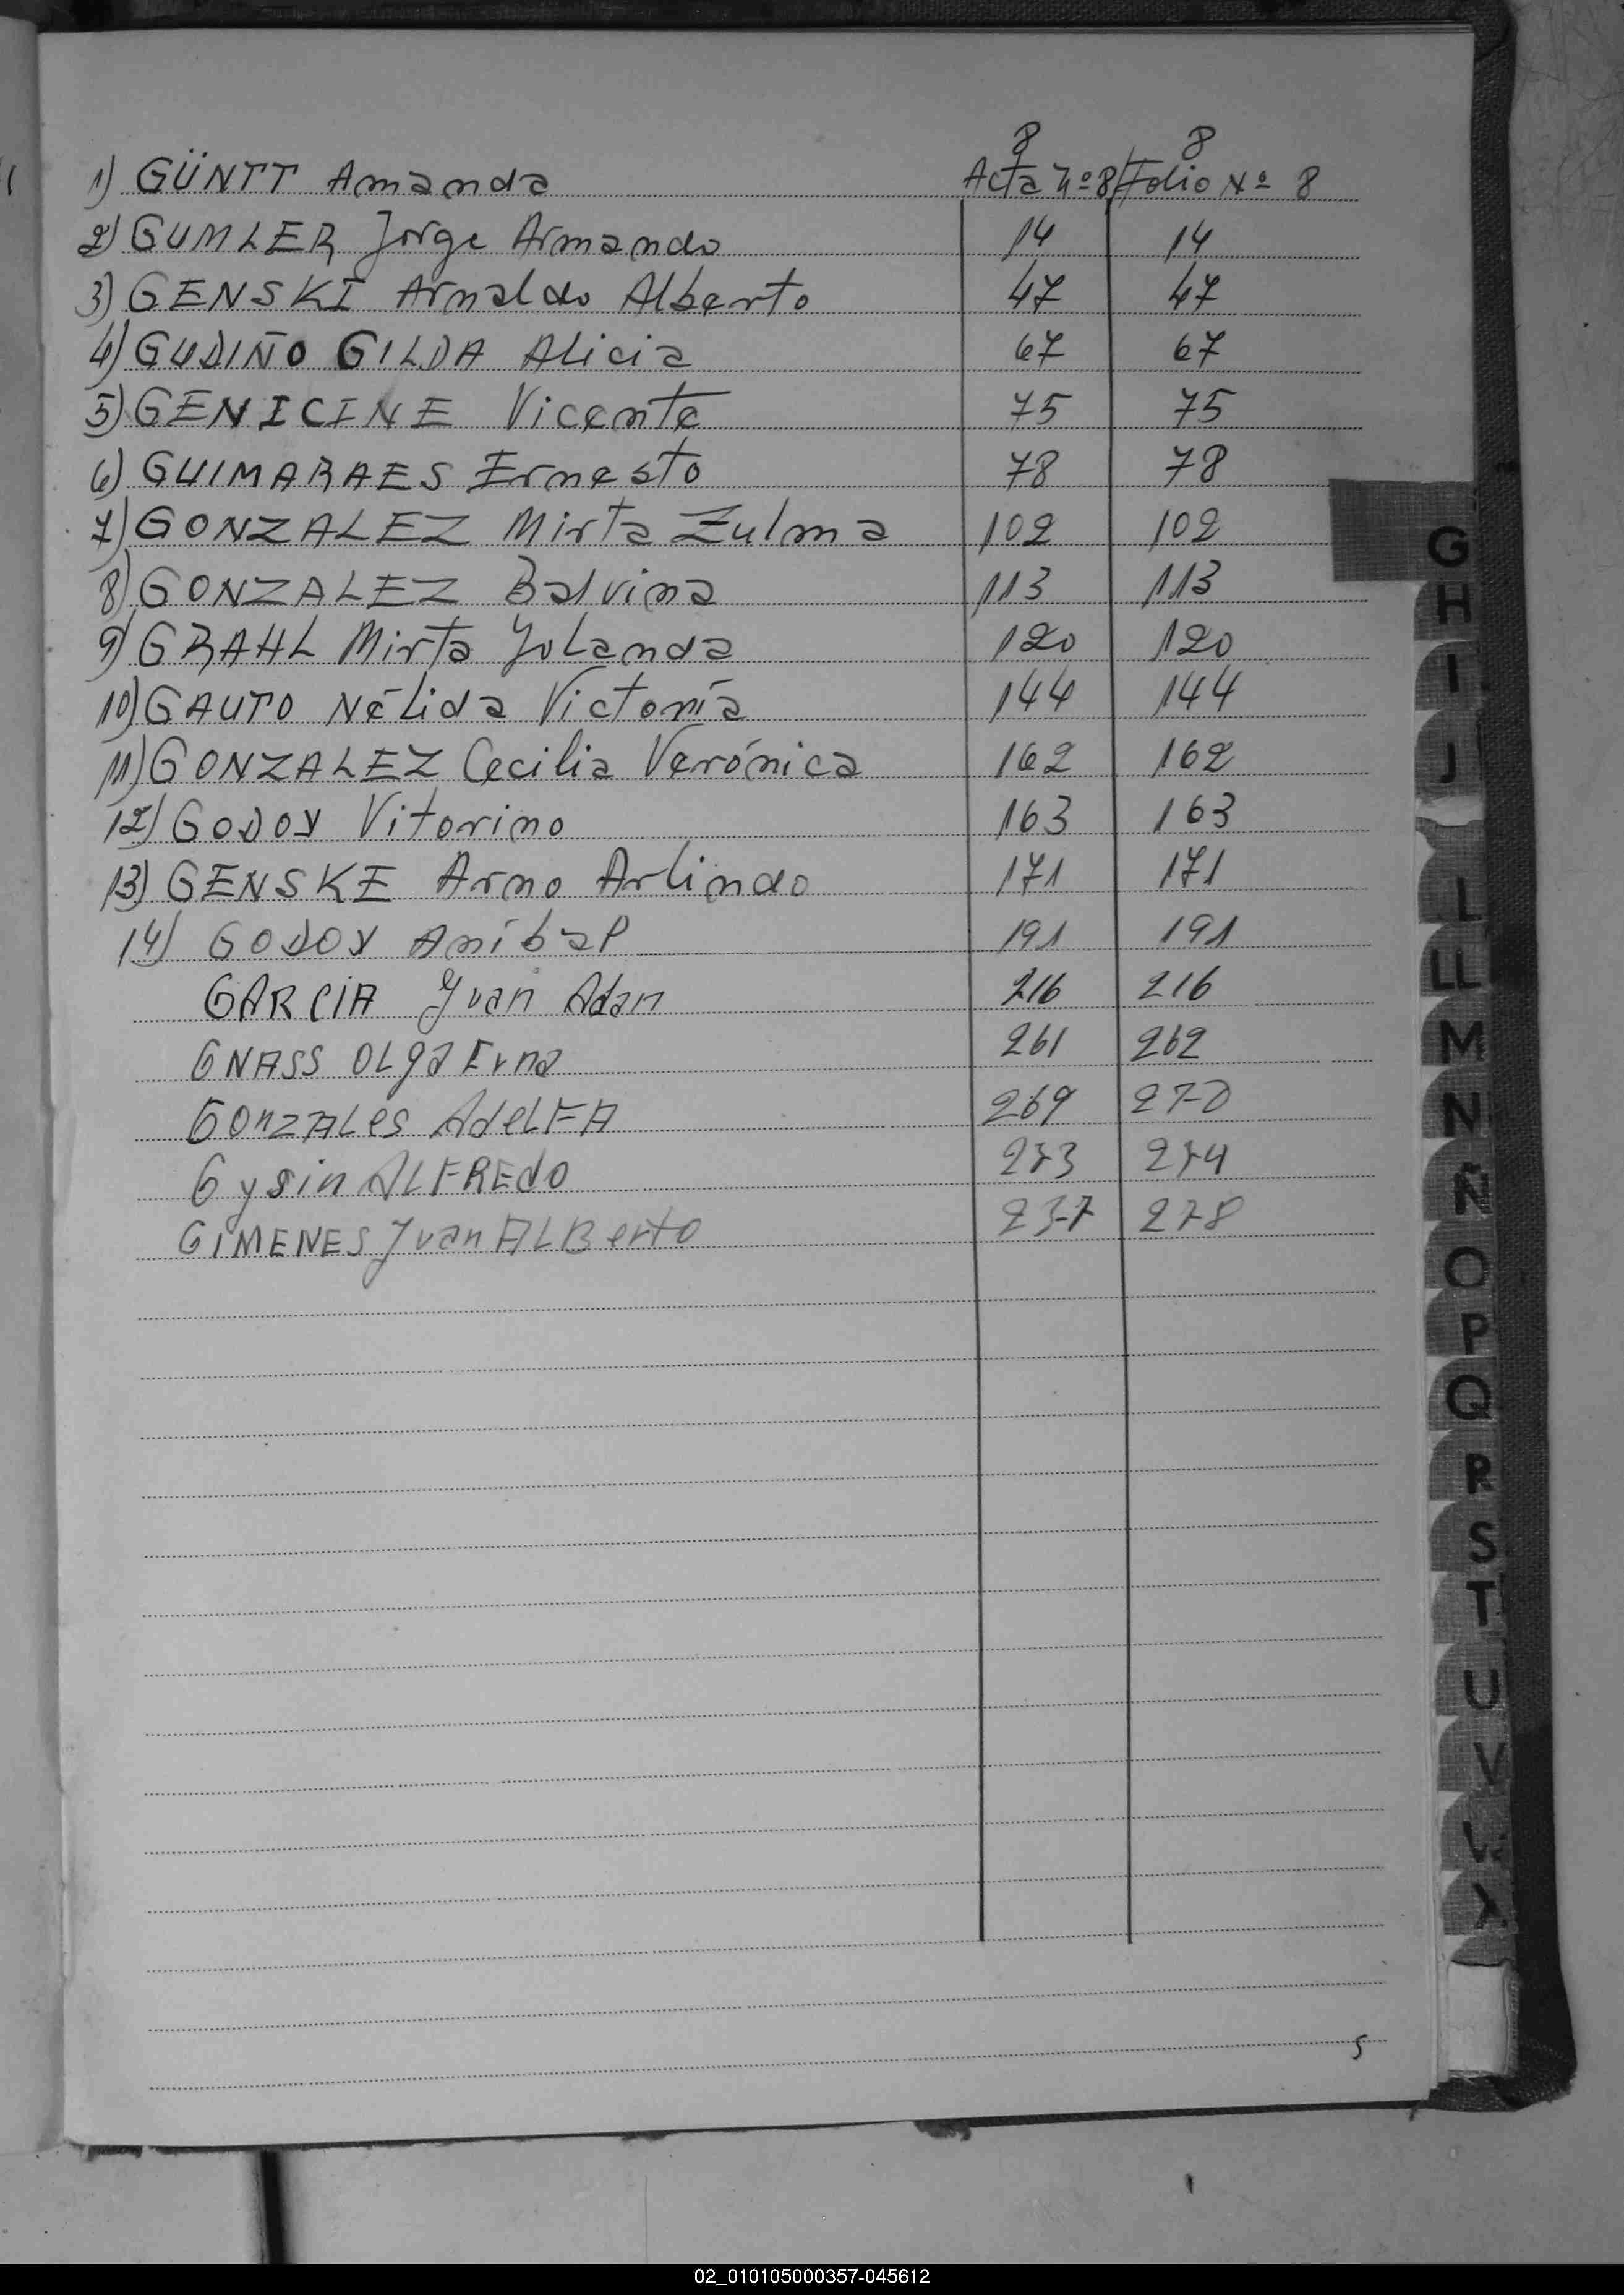 8 8
1) GÜNTT Amanda Acta Nº 8 Folio Nº 8
2) GUMLER Jorge Armando 14 14
3) GENSKI Arnaldo Alberto 47 47
4) GUDIÑO GILDA Alicia 67 67
5) GENICINE Vicente 75 75
6) GUIMARAES Ernesto 78 78
7) GONZALEZ Mirta Zulma 102 102
8) GONZALEZ Balvina 113 113
9) GRAHL Mirta Yolanda 120 120
10) GAUTO Nélida Victoria 144 144
11) GONZALEZ Cecilia Verónica 162 162
12) GODOY Vitorino 163 163
13) GENSKE Arno Arlindo 171 171
14) GODOY Aníbal 191 191
GARCIA Juan Adan 216 216
GNASS OLga Erna 261 262
GonzALes AdeLFA 269 270
Gysin ALFREdo 273 274
GIMENES Juan ALBerto 237 278
5
G
H
I
J
L
LL
M
N
Ñ
O
P
Q
R
S
T
U
V
X
02_010105000357-045612